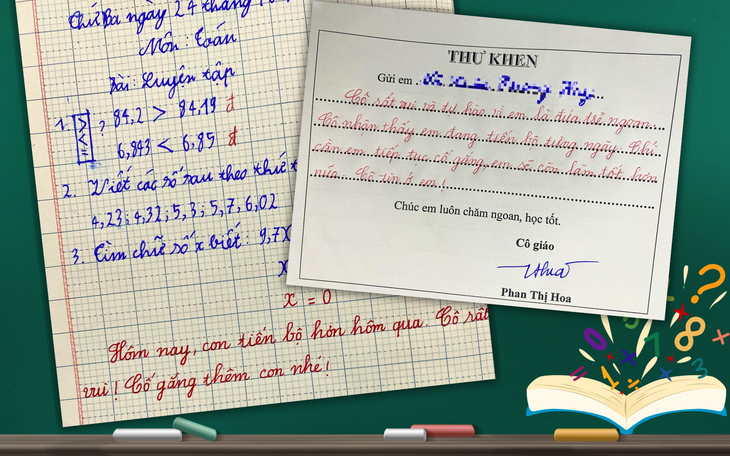 Thứ ba ngày 24 tháng 10
Môn: Toán
Bài: Luyện tập
1. > < = ? 84,2 > 84,19 đ
6,843 < 6,85 đ
2. Viết các số sau theo thứ t
4,23; 4,32; 5,3; 5,7; 6,02
3. Tìm chữ số x biết: 9,7x
x
x = 0
Hôm nay, con tiến bộ hơn hôm qua. Cô rất
vui! Cố gắng thêm con nhé!
THƯ KHEN
Gửi em
Cô rất vui và tự hào vì em là đứa trẻ ngoan.
Cô nhận thấy em đang tiến bộ từng ngày. Chỉ
cần em tiếp tục cố gắng, em sẽ còn làm tốt hơn
nữa. Cô tin ở em!
Chúc em luôn chăm ngoan, học tốt.
Cô giáo
Phan Thị Hoa